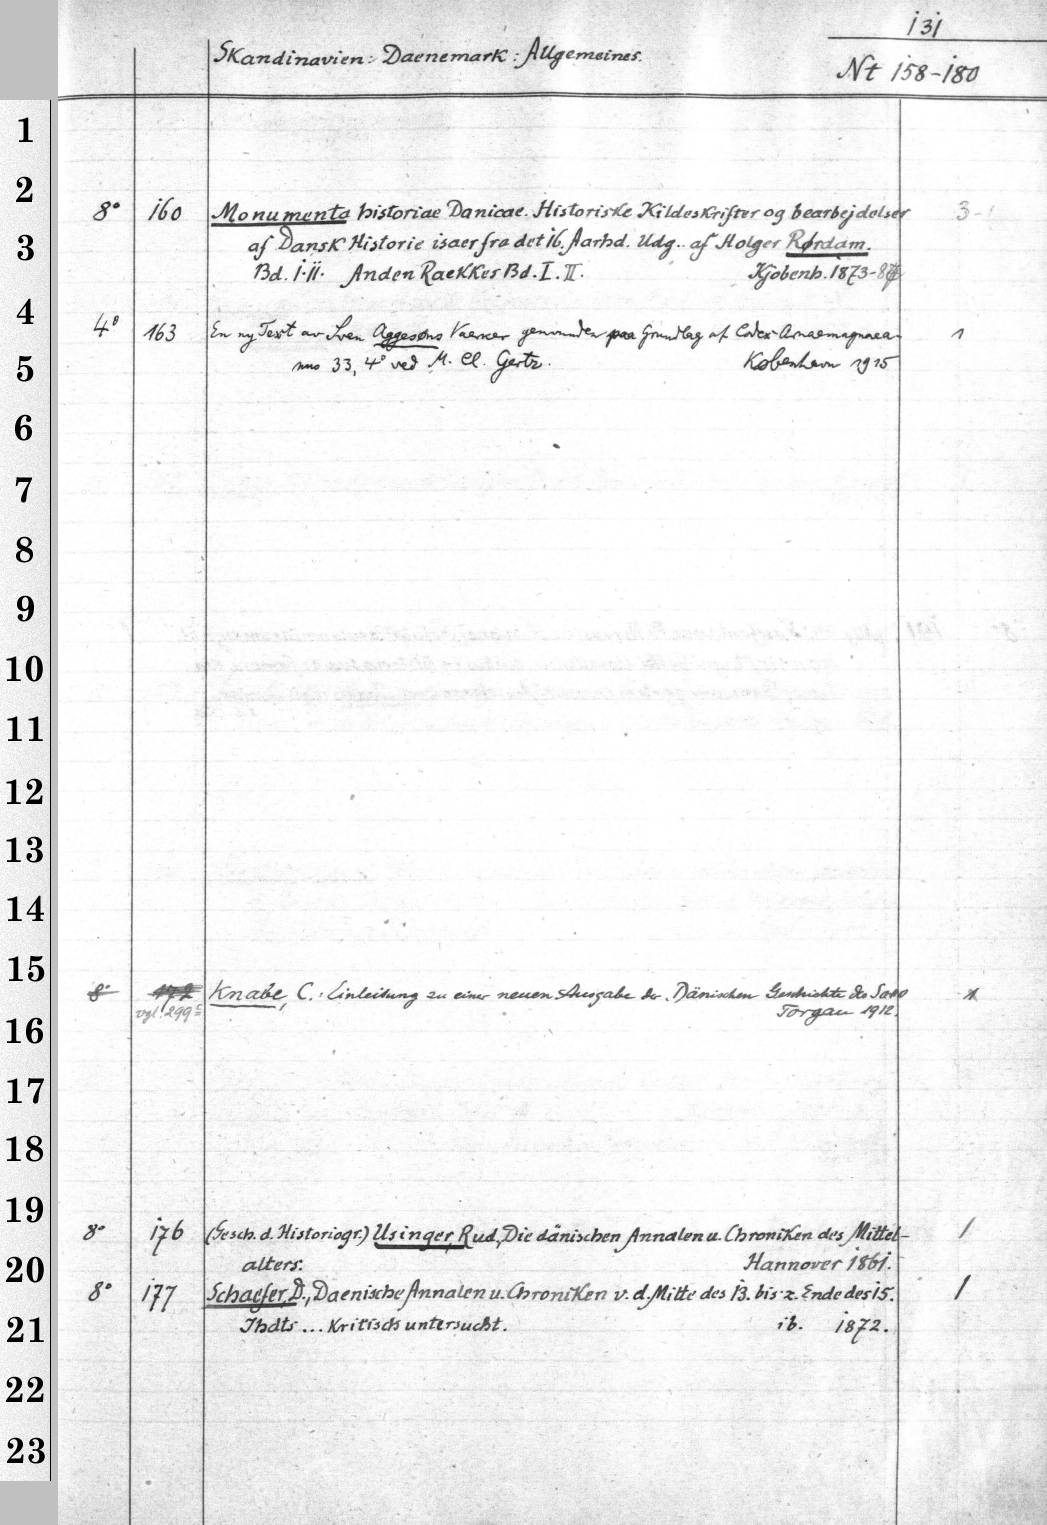 131
Skandinavien: Daenemark: Allgemeines.
Nt 158-180
1
2
8° 160 Monumenta historiae Danicae. Historiske Kildeskrifter og bearbejdelser 3-
3
af Dansk Historie isaer fra det 16. Aarhd. Udg. af Holger Rørdam.
Bd. I.II. Anden Raekkes Bd. I. II. Kjöbenh. 1873-87
4
4° 163 En ny Text av Sven Aggesøns Vaerker genvunden paa Grundlag af Codex Arnaemagnaea- 1
5
nus 33, 4° ved M. Cl. Gertz. København 1915
6
7
8
9
10
11
12
13
14
15
8° 172 Knabe, C.: Einleitung zu einer neuen Ausgabe der Dänischen Geschichte des Saxo 1
vgl. 299 Torgau 1912.
16
17
18
19
8° 176 (Gesch. d. Historiogr.) Usinger, Rud., Die dänischen Annalen u. Chroniken des Mittel- 1
20
alters. Hannover 1861.
8° 177 Schaefer, D., Daenische Annalen u. Chroniken v. d. Mitte des 13. bis z. Ende des 15. 1
21
Jhdts ... Kritisch untersucht. ib. 1872.
22
23